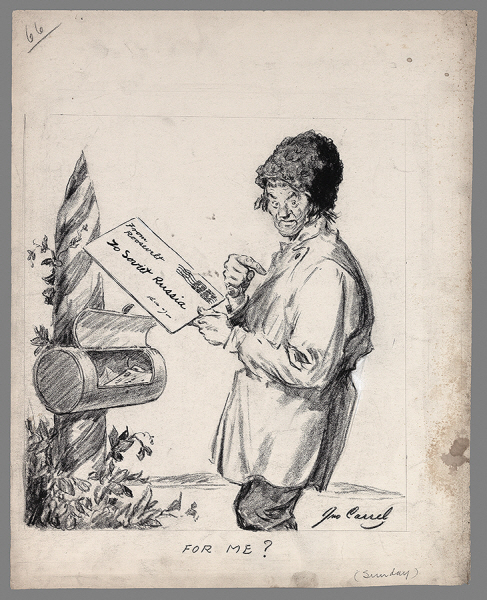 66
From
Roosevelt
To Soviet Russia
Jno Carrel
FOR ME?
(Sunday)